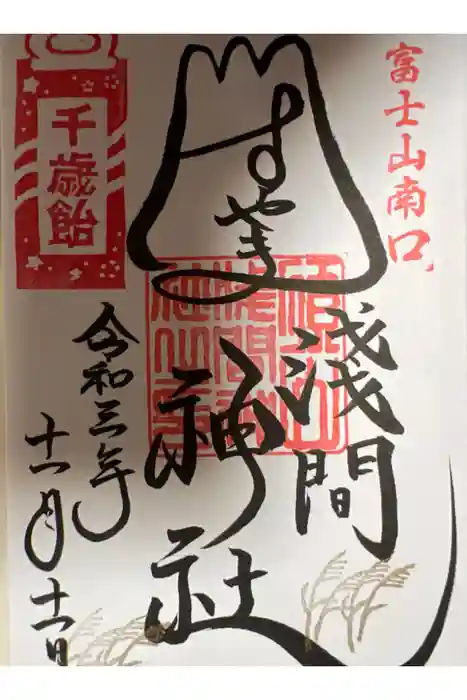 富士山南口
すやま
浅間
神社
令和三年
十一月十一日
千歳飴